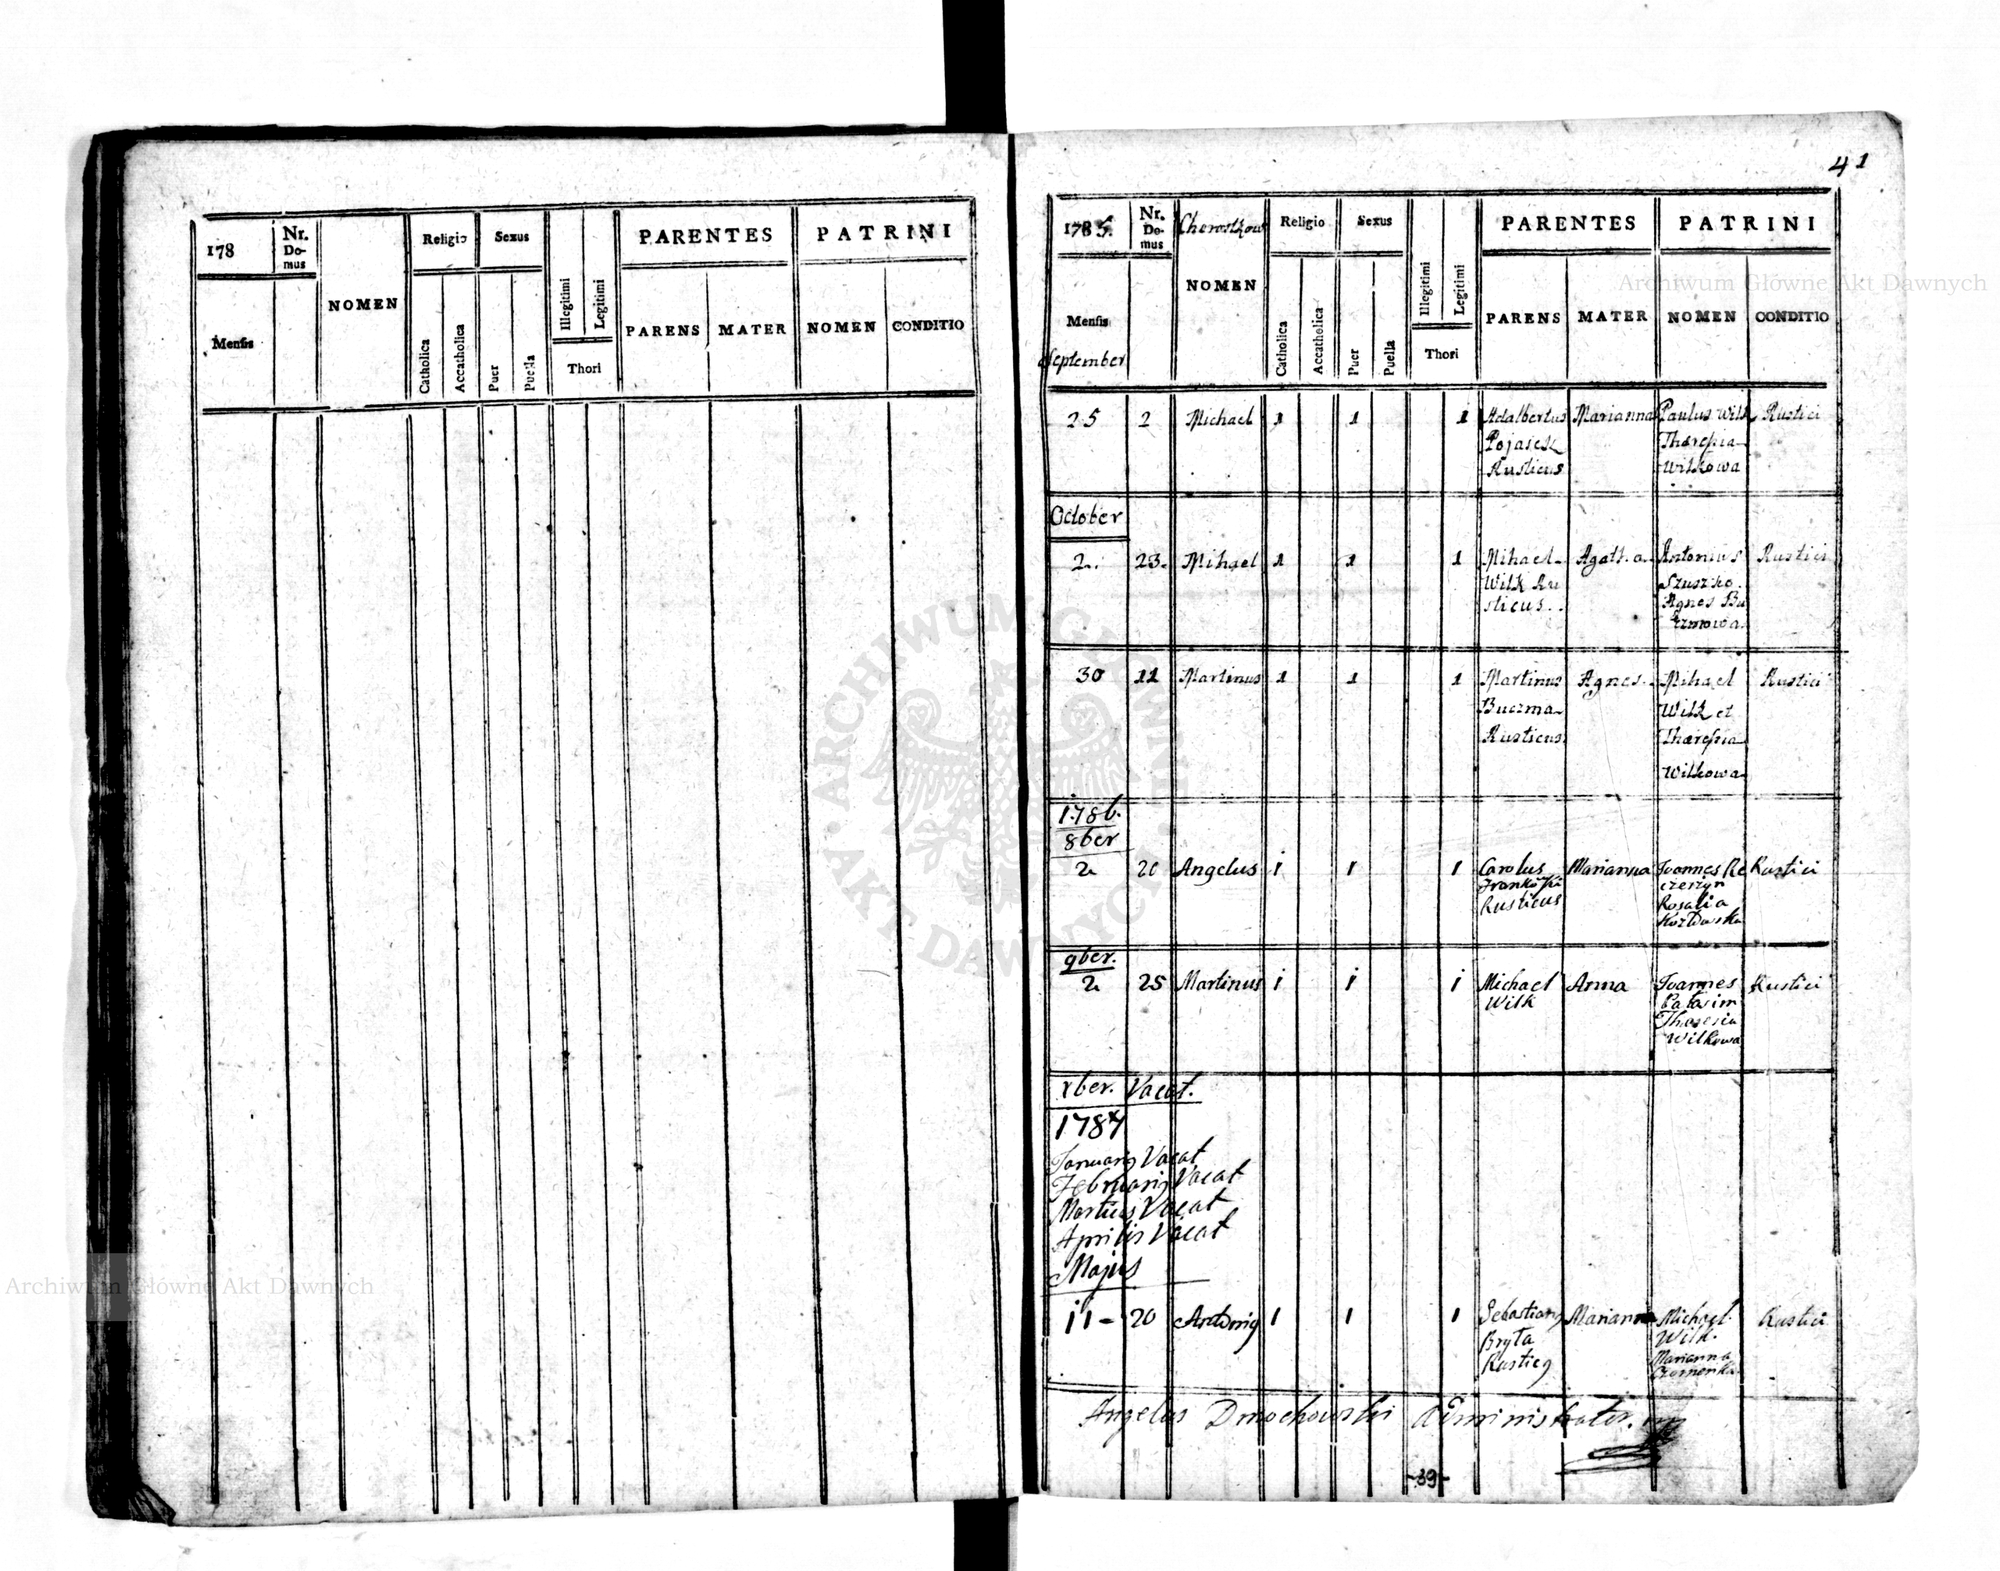 178
Nr. Domus
NOMEN
Religio
Sexus
PARENTES
PATRINI
Mensis
Catholica
Accatholica
Puer
Puella
Illegitimi
Legitimi
Thori
PARENS
MATER
NOMEN
CONDITIO
41
1785.
Nr. Domus
NOMEN
Religio
Sexus
PARENTES
PATRINI
Mensis
September
Catholica
Accatholica
Puer
Puella
Illegitimi
Legitimi
Thori
PARENS
MATER
NOMEN
CONDITIO
25 2 Michael 1 1 1 Adalbertus Marianna Paulus Wilk Rustici
Pojasek Theresia
Rusticus Wilkowa
October
2. 23. Mihael 1 1 1 Mihael Agatha Antonius Rustici
Wilk Ru Szuszko.
sticus.. Agnes Bu
czmowa.
30 11 Martinus 1 1 1 Martinus Agnes. Mihael Rustici
Buczma Wilk et
Rusticus. Theresia
Wilkowa
1786.
8ber
2 20 Angelus 1 1 1 Carolus Marianna Ioannes Rustici
Rusticus Rosalia
9ber.
2 25 Martinus 1 1 1 Michael Anna Ioannes Rustici
Wilk
Theresia
Wilkowa
xber. Vacat.
1787
Januarius Vacat
Februarius Vacat
Martius Vacat
Aprilis Vacat
Majus
11 - 20 1 1 1 Sebastianus Marianna Michael Rustici
Bryła Wilk.
Rusticus Marianna
Angelus Dmochowski Administrator. mp
-39-
Archiwum Główne Akt Dawnych
Archiwum Główne Akt Dawnych
ARCHIWUM GŁÓWNE
AKT DAWNYCH